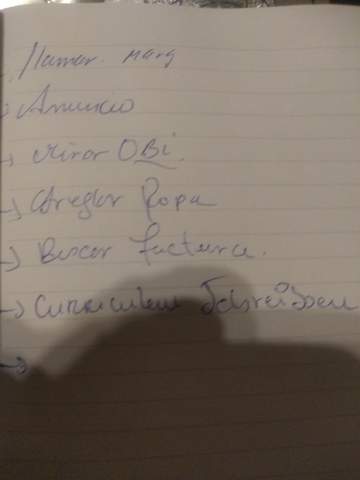 → Llamar. Marg
→ Anuncio
→ Mirar OBi.
→ Areglar Ropa
→ Buscar factura.
→ Curriculum Schreiben
→